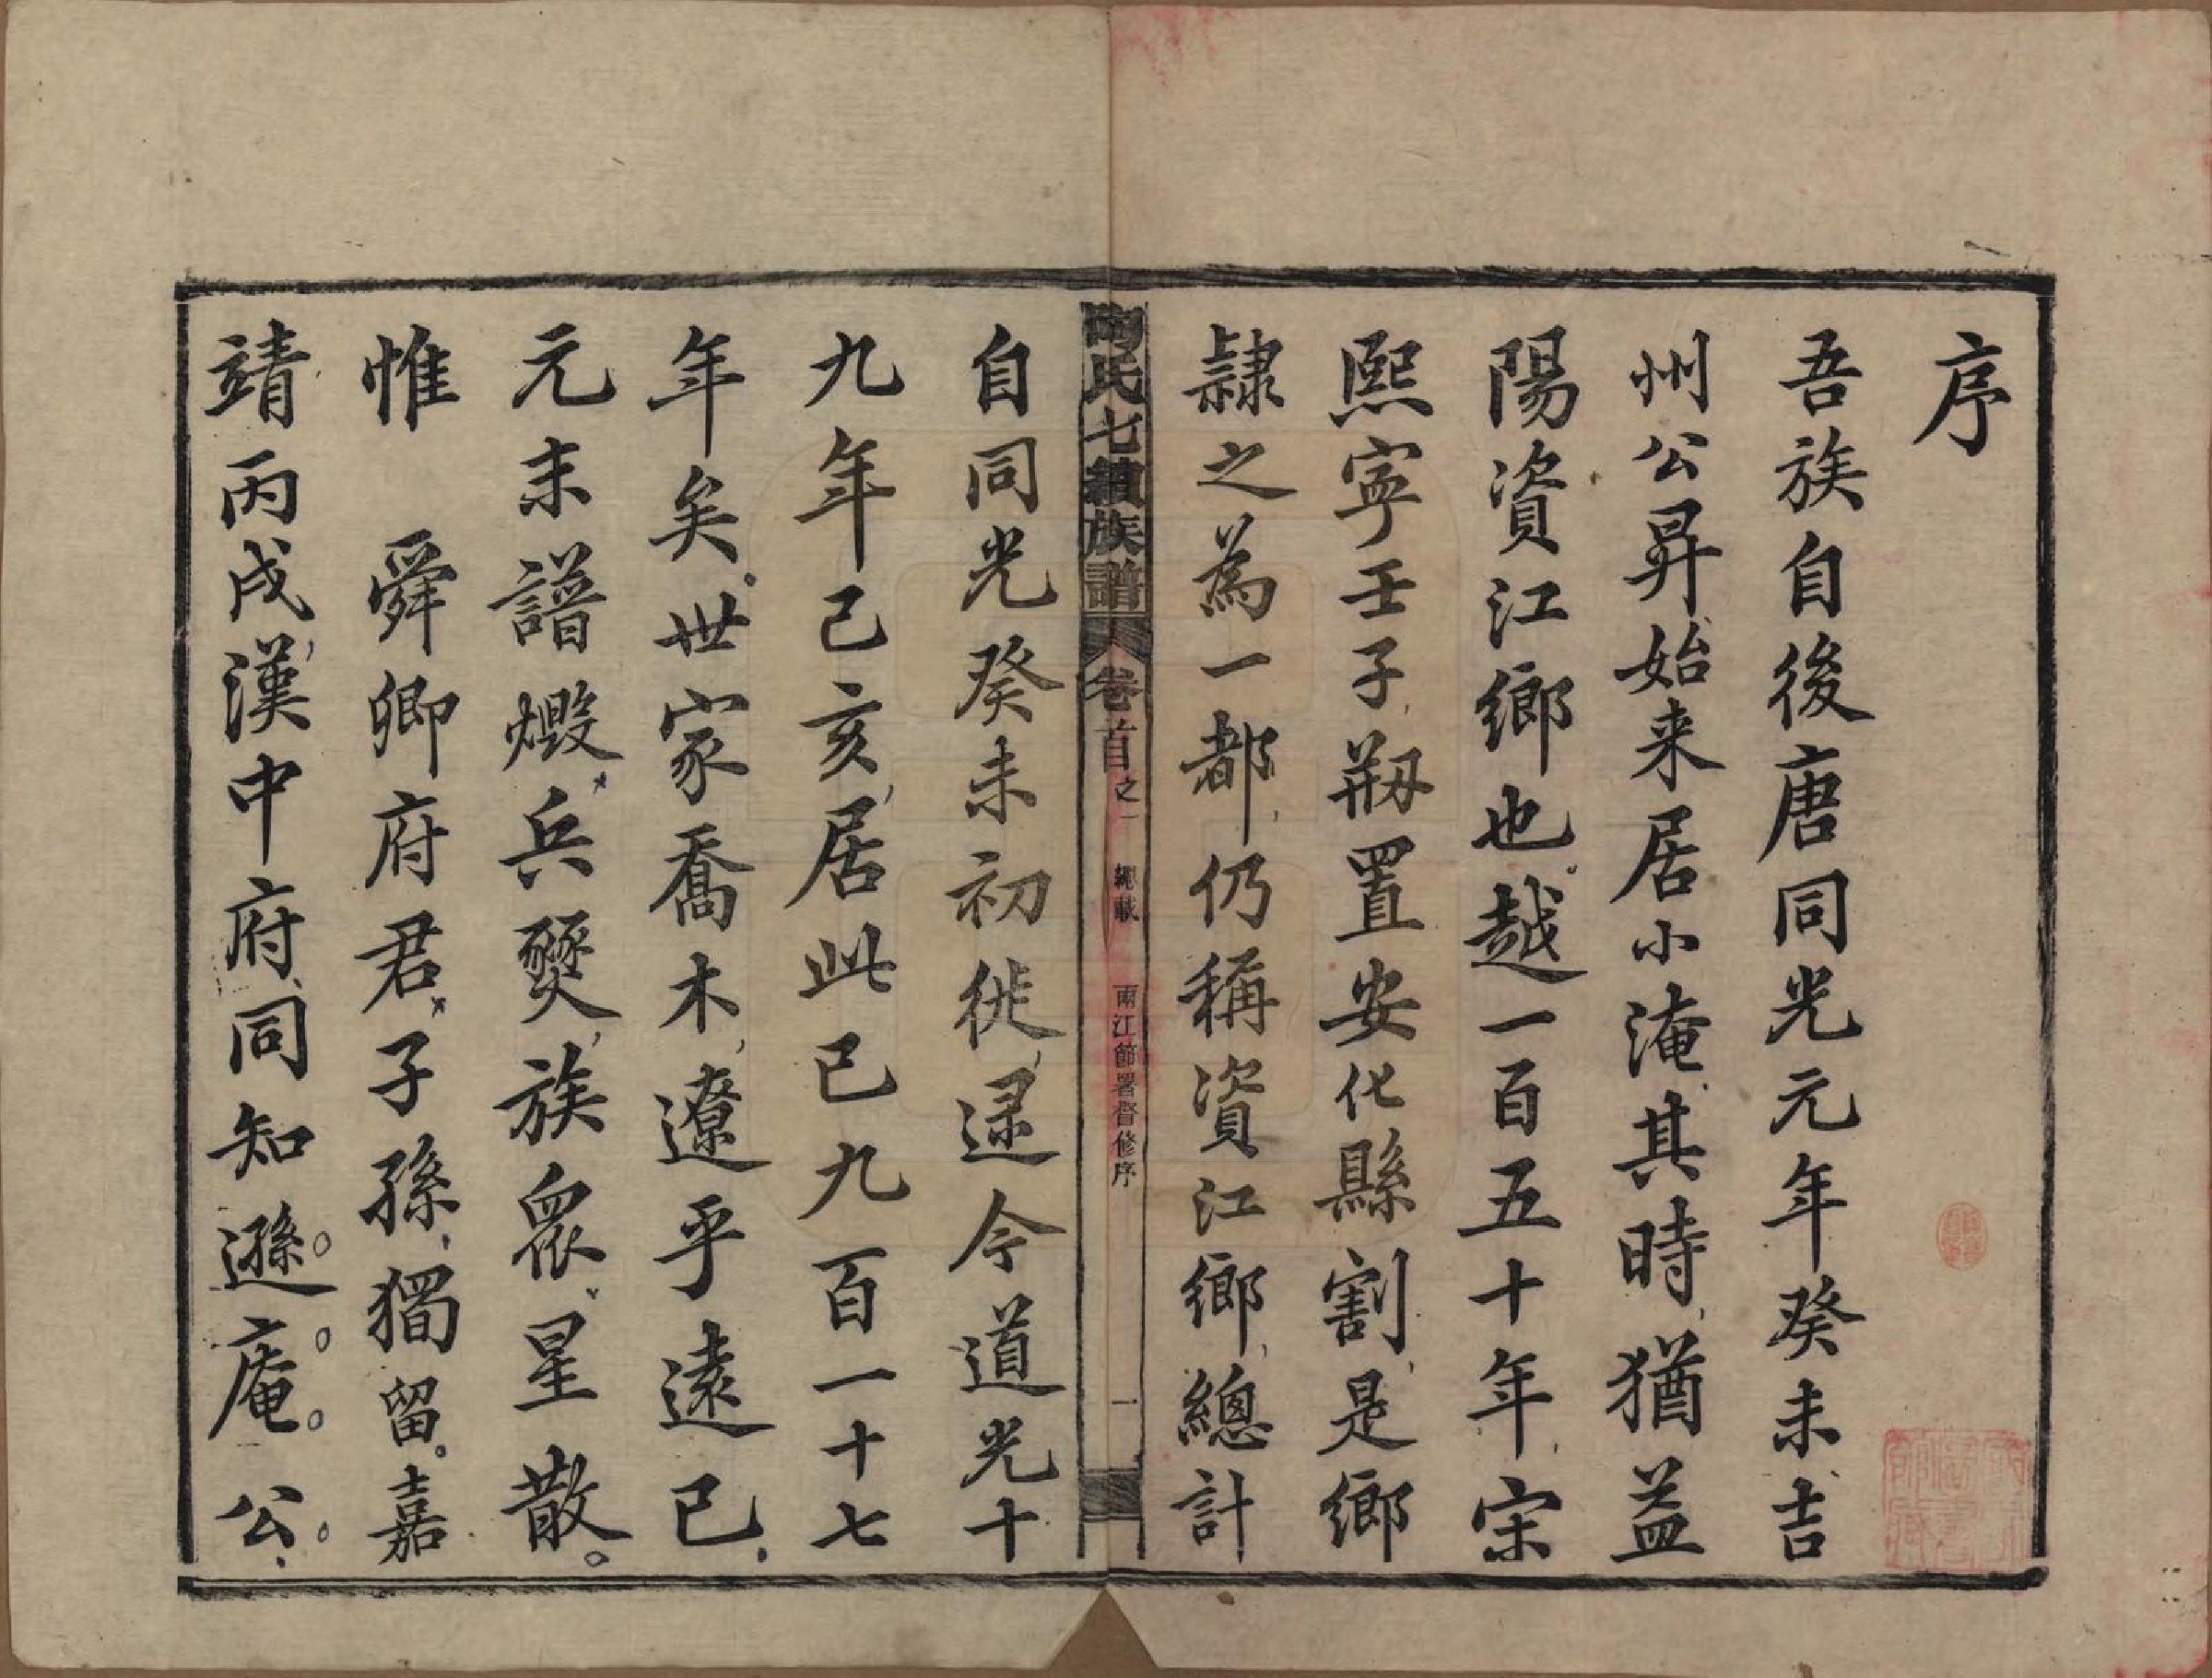 序
吾族自後唐同光元年癸未吉
州公昇始来居小淹其時猶益
陽資江鄉也越一百五十年宋
熙寧壬子剏置安化縣割是鄉
隷之為一都仍稱資江鄉總計
陶氏七續族譜 卷首之一 總載 兩江節署督修序 一
自同光癸未初徙逯今道光十
九年己亥居此已九百一十七
年矣世家喬木遼乎遠已
元末譜燬兵燹族衆星散
惟 舜卿府君子孫獨留嘉
靖丙戌漢中府同知遜庵公